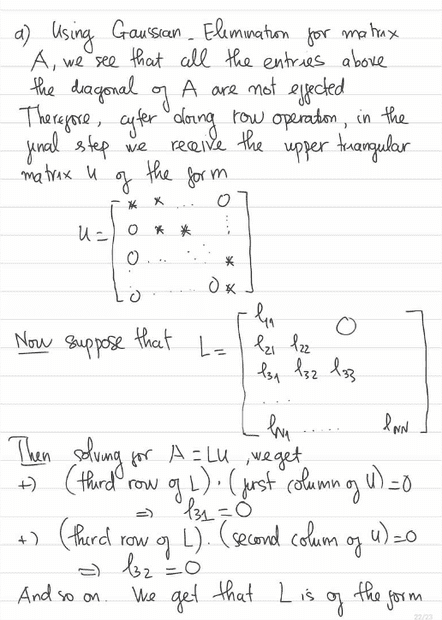 a) Using Gaussian-Elimination for matrix
A, we see that all the entries above
the diagonal of A are not effected
Therefore, after doing row operation, in the
final step we receive the upper triangular
matrix U of the form
U = [ * * ... 0
0 * * ⋮
0 ... ⋱ *
0 ...... 0 * ]
Now suppose that L = [ l₁₁ 0
l₂₁ l₂₂
l₃₁ l₃₂ l₃₃
...
l_N1 ..... l_NN ]
Then solving for A = LU, we get
+) (third row of L) · (first column of U) = 0
=> l₃₁ = 0
+) (third row of L). (second colum of U) = 0
=> l₃₂ = 0
And so on. We get that L is of the form
22/23